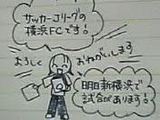 サッカーJリーグの
横浜FCです!
よろしく
おねがいします
明日新横浜で
試合があります!